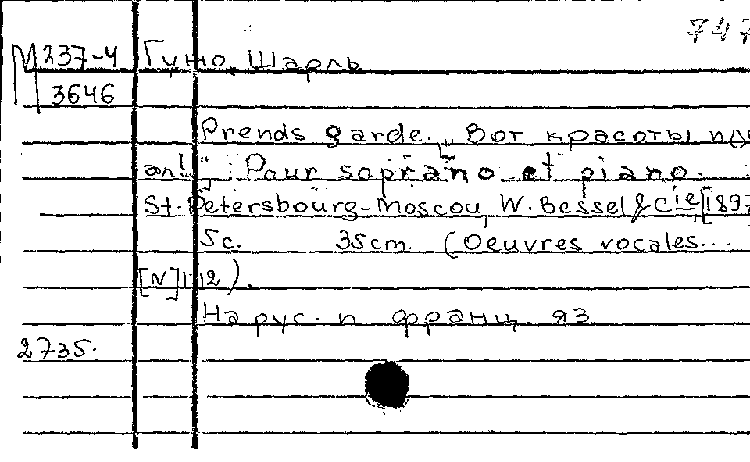 747
М 237-4 Гуно, Шарль
3646
Prends garde. „Вот красоты
Pour soprano et piano.
St.-Petersbourg-Moscou, W. Bessel & Cie, [1897
5c. 35cm. (Oeuvres vocales...
[N] 112).
На рус. и франц. яз
2735.